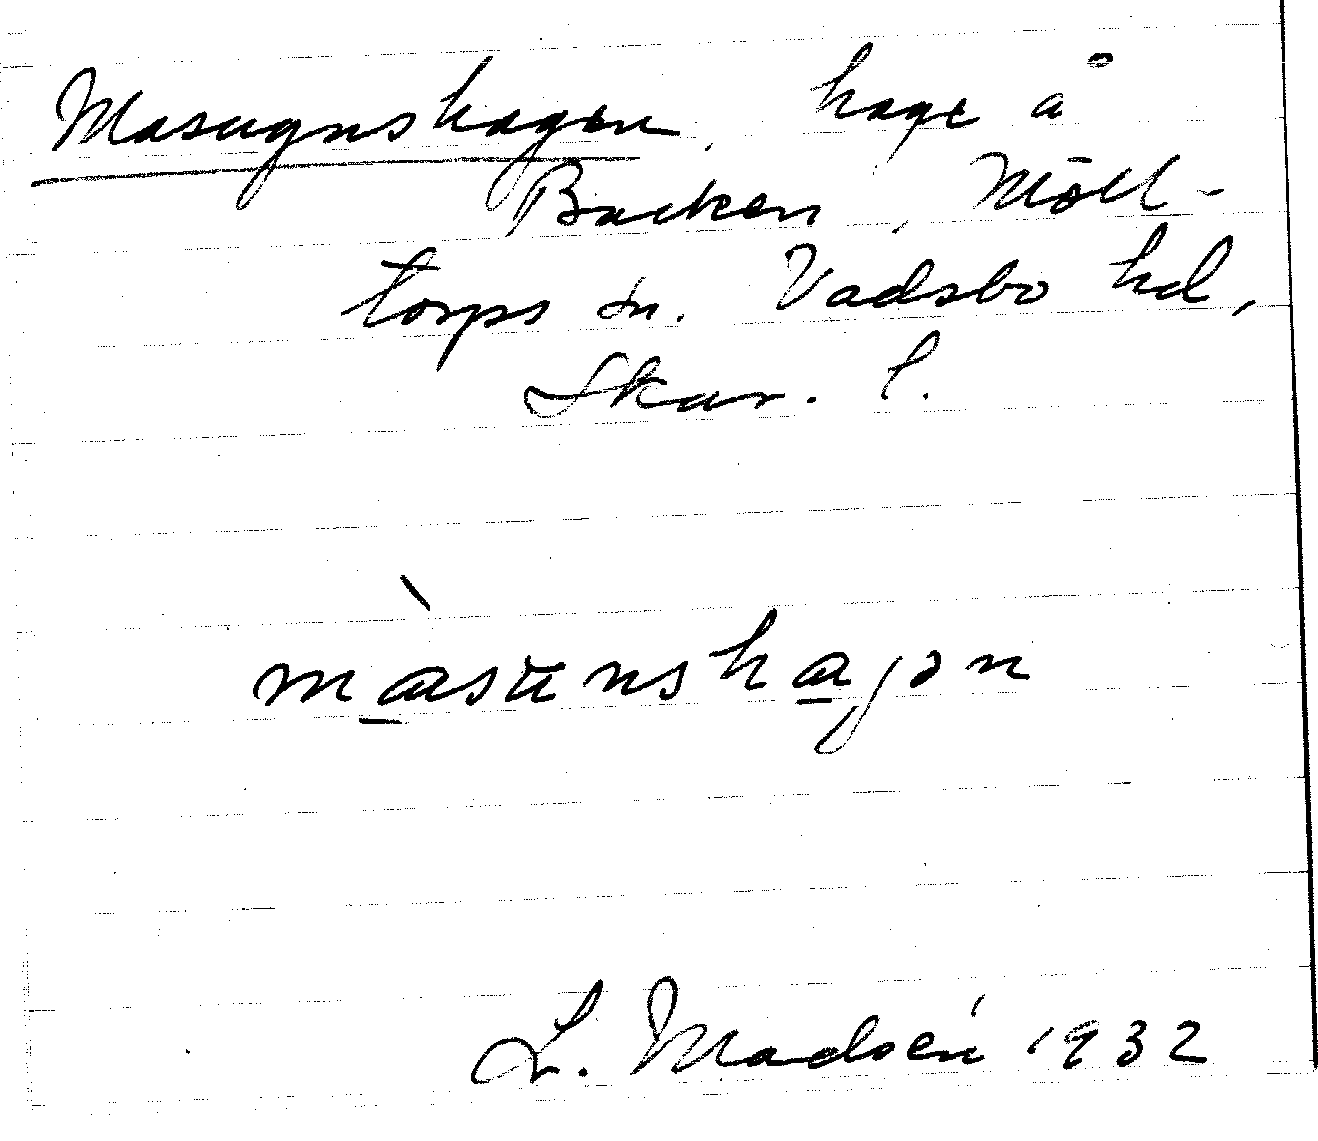 Masugnshagen, hage å
Backen, Möll-
torps sn. Vadsbo hd,
Skar. l.
màsunshagən
L. Madsén 1932